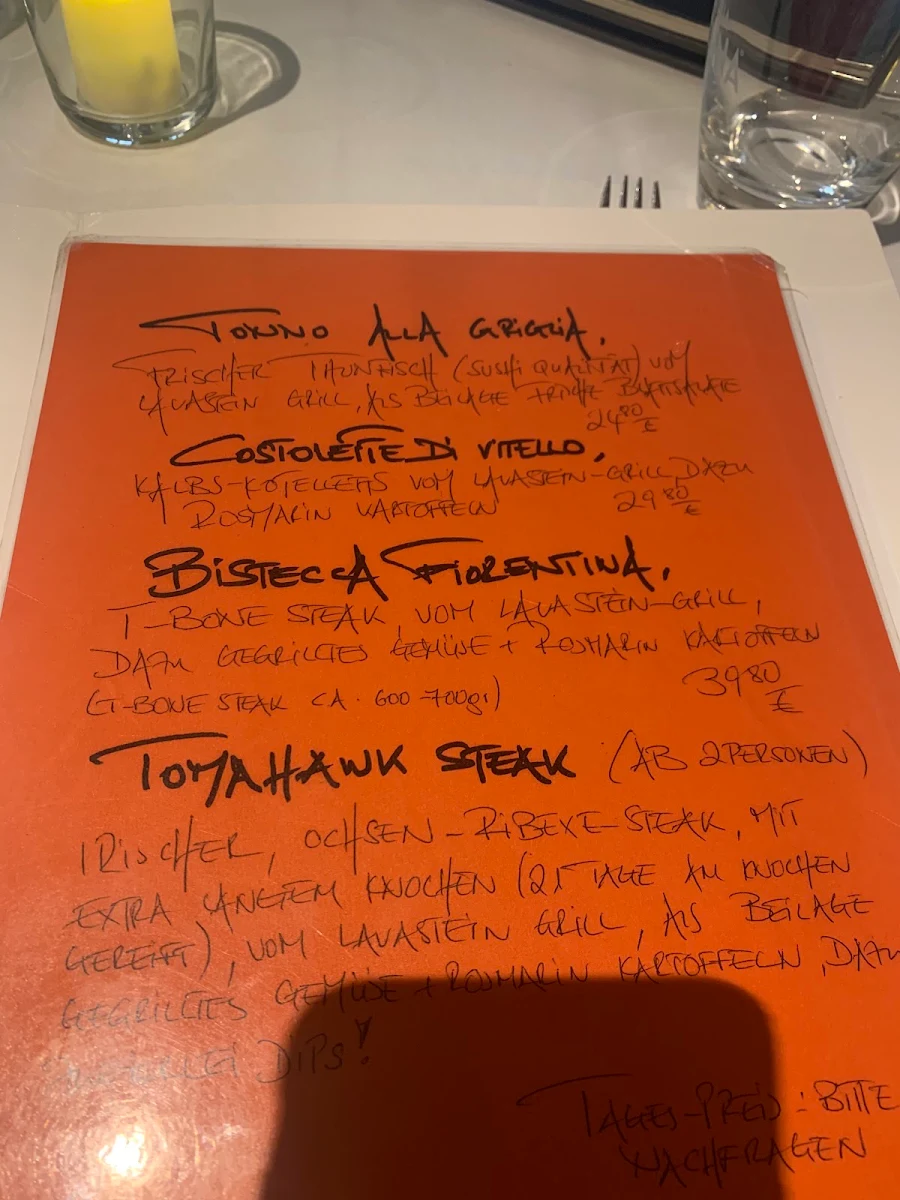 TONNO ALLA GRIGLIA,
FRISCHER THUNFISCH (SUSHI QUALITÄT) VOM
LAVASTEIN GRILL, ALS BEILAGE FRISCHE BLATTSALATE
24⁸⁰ €
COSTOLETTE DI VITELLO,
KALBS-KOTELLETTS VOM LAVASTEIN-GRILL, DAZU
ROSMARIN KARTOFFELN 29⁸⁰ €
BISTECCA FIORENTINA,
T-BONE STEAK, VOM LAVASTEIN-GRILL,
DAZU GEGRILLTES GEMÜSE + ROSMARIN KARTOFFELN
(T-BONE STEAK CA. 600-700gr) 39⁸⁰ €
TOMAHAWK STEAK (AB 2 PERSONEN)
IRISCHER, OCHSEN-RIBEYE-STEAK, MIT
EXTRA LANGEM KNOCHEN (21 TAGE AM KNOCHEN
GEREIFT), VOM LAVASTEIN GRILL, ALS BEILAGE
GEGRILLTES GEMÜSE + ROSMARIN KARTOFFELN, DAZU
DIPS!
TAGES-PREIS: BITTE
NACHFRAGEN